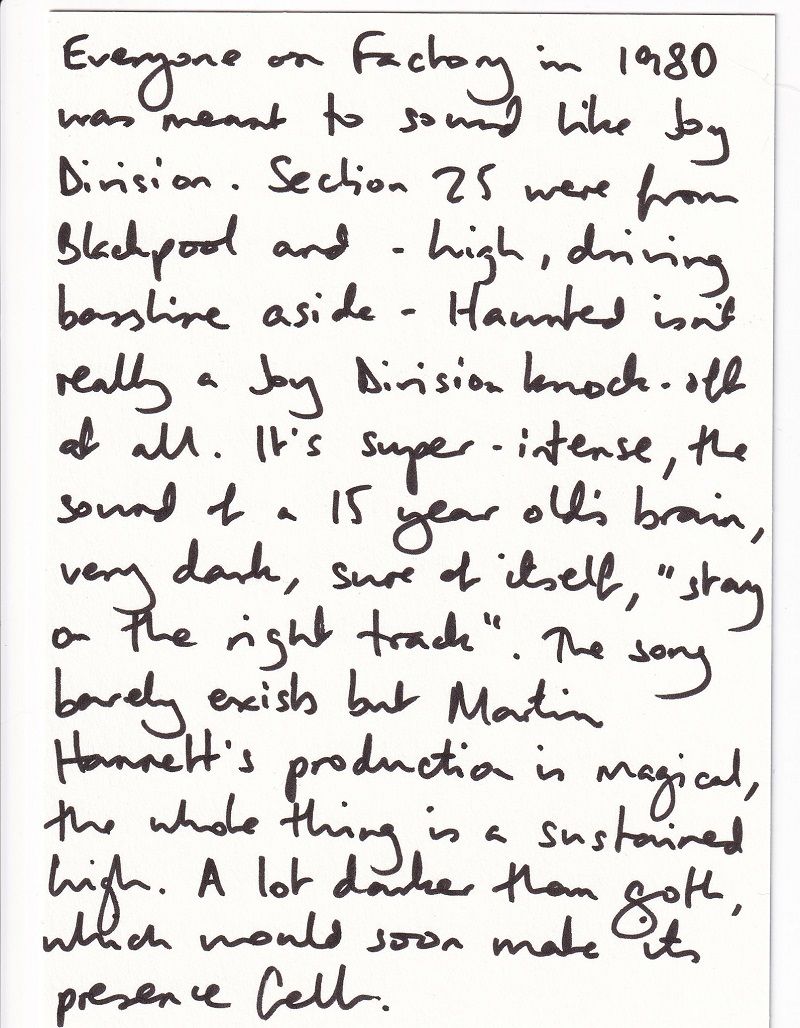 Everyone on Factory in 1980
was meant to sound like Joy
Division. Section 25 were from
Blackpool and - high, driving
bassline aside - Haunted isn't
really a Joy Division knock-off
at all. It's super-intense, the
sound of a 15 year old's brain,
very dark, sure of itself, "stay
on the right track". The song
barely exists but Martin
Hannett's production is magical,
the whole thing is a sustained
high. A lot darker than goth,
which would soon make its
presence felt.